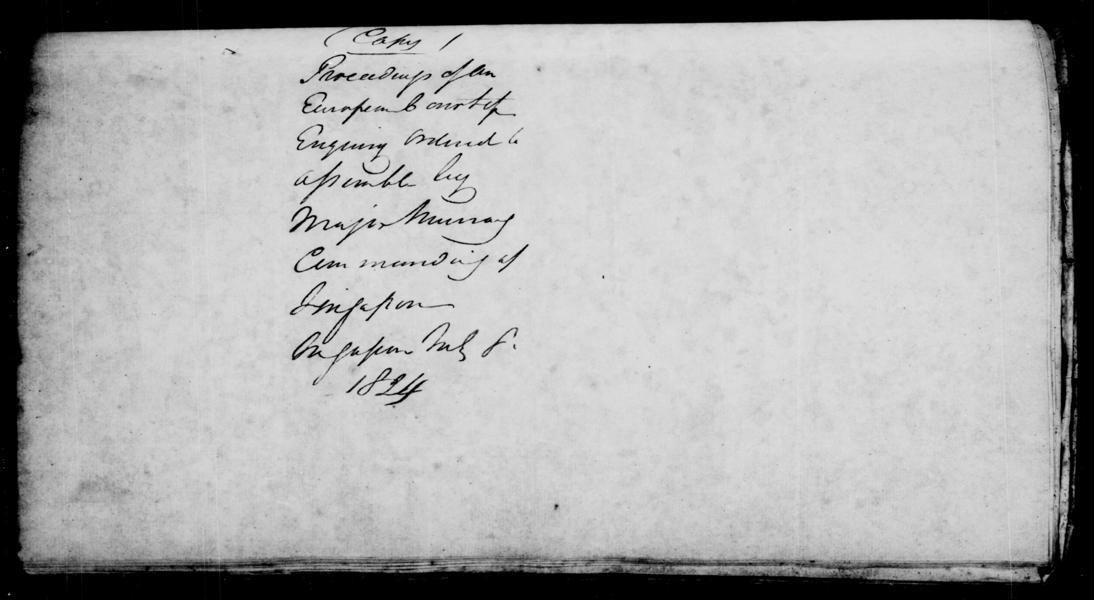 (Copy)
Proceedings of an
European Court of
Enquiry Ordered to
assemble by
Major Murray
Commanding at
Singapore
Singapore July 8.
1824